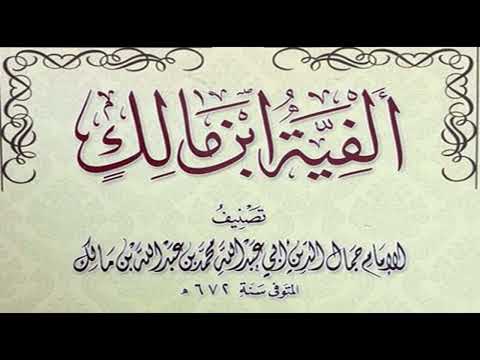 ألفِيَّةُ ابنِ مَالِكٍ
تَصْنِيفُ
الإمام جمال الدين أبي عبد الله محمد بن عبد الله بن مالك
المتوفى سَنَة ٦٧٢ هـ